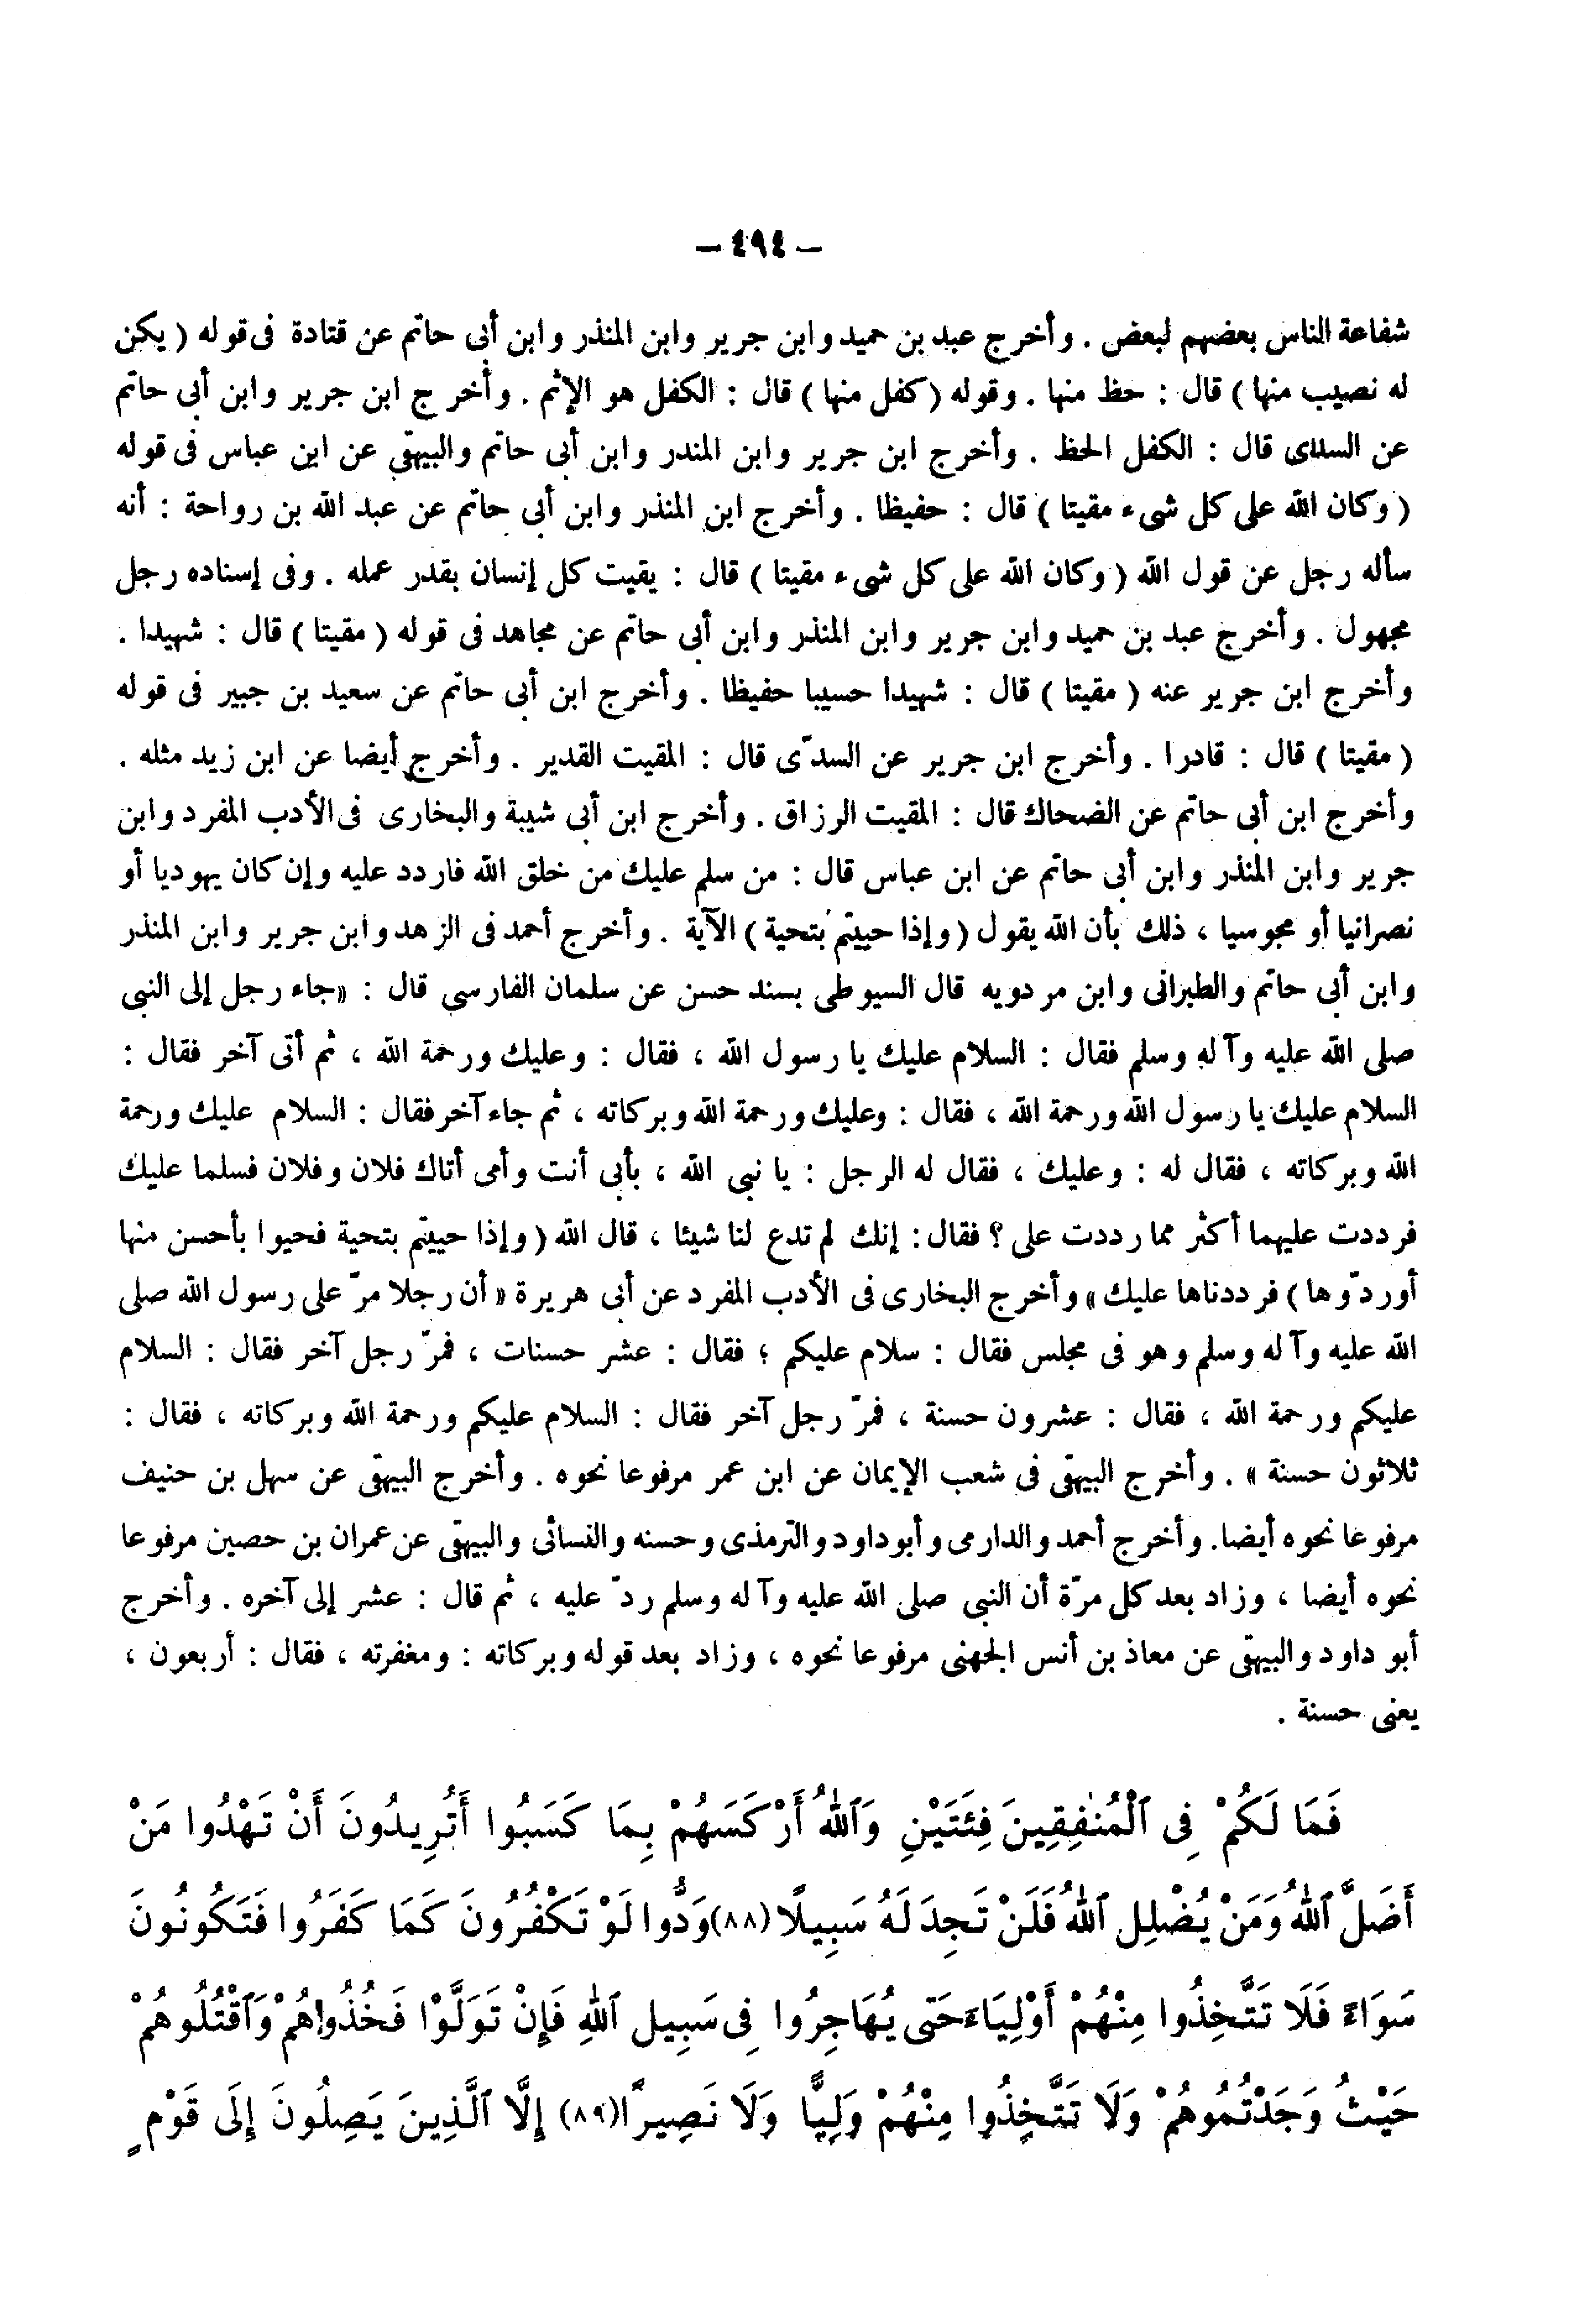 – ٤٩٤ –
شفاعة الناس بعضهم لبعض . وأخرج عبد بن حميد وابن جرير وابن المنذر وابن أبى حاتم عن قتادة فى قوله ( يكن
له نصيب منها ) قال : حظ منها . وقوله ( كفل منها ) قال : الكفل هو الإثم . وأخرج ابن جرير وابن أبى حاتم
عن السدى قال : الكفل الحظ . وأخرج ابن جرير وابن المنذر وابن أبى حاتم والبيهقى عن ابن عباس فى قوله
( وكان الله على كل شىء مقيتا ) قال : حفيظا . وأخرج ابن المنذر وابن أبى حاتم عن عبد الله بن رواحة : أنه
سأله رجل عن قول الله ( وكان الله على كل شىء مقيتا ) قال : يقيت كل إنسان بقدر عمله . وفى إسناده رجل
مجهول . وأخرج عبد بن حميد وابن جرير وابن المنذر وابن أبى حاتم عن مجاهد فى قوله ( مقيتا ) قال : شهيدا .
وأخرج ابن جرير عنه ( مقيتا ) قال : شهيدا حسيبا حفيظا . وأخرج ابن أبى حاتم عن سعيد بن جبير فى قوله
( مقيتا ) قال : قادرا . وأخرج ابن جرير عن السدّى قال : المقيت القدير . وأخرج أيضا عن ابن زيد مثله .
وأخرج ابن أبى حاتم عن الضحاك قال : المقيت الرزاق . وأخرج ابن أبى شيبة والبخارى فى الأدب المفرد وابن
جرير وابن المنذر وابن أبى حاتم عن ابن عباس قال : من سلم عليك من خلق الله فاردد عليه وإن كان يهوديا أو
نصرانيا أو مجوسيا ، ذلك بأن الله يقول ( وإذا حييتم بتحية ) الآية . وأخرج أحمد فى الزهد وابن جرير وابن المنذر
وابن أبى حاتم والطبرانى وابن مردويه قال السيوطى بسند حسن عن سلمان الفارسى قال : « جاء رجل إلى النبى
صلى الله عليه وآله وسلم فقال : السلام عليك يا رسول الله ، فقال : وعليك ورحمة الله ، ثم أتى آخر فقال :
السلام عليك يا رسول الله ورحمة الله ، فقال : وعليك ورحمة الله وبركاته ، ثم جاء آخر فقال : السلام عليك ورحمة
الله وبركاته ، فقال له : وعليك ، فقال له الرجل : يا نبى الله ، بأبى أنت وأمى أتاك فلان وفلان فسلما عليك
فرددت عليهما أكثر مما رددت على ؟ فقال : إنك لم تدع لنا شيئا ، قال الله ( وإذا حييتم بتحية فحيوا بأحسن منها
أوردّوها ) فرددناها عليك » وأخرج البخارى فى الأدب المفرد عن أبى هريرة « أن رجلا مرّ على رسول الله صلى
الله عليه وآله وسلم وهو فى مجلس فقال : سلام عليكم ؛ فقال : عشر حسنات ، فمرّ رجل آخر فقال : السلام
عليكم ورحمة الله ، فقال : عشرون حسنة ، فمرّ رجل آخر فقال : السلام عليكم ورحمة الله وبركاته ، فقال :
ثلاثون حسنة » . وأخرج البيهقى فى شعب الإيمان عن ابن عمر مرفوعا نحوه . وأخرج البيهقى عن سهل بن حنيف
مرفوعا نحوه أيضا . وأخرج أحمد والدارمى وأبوداود والترمذى وحسنه والنسائى والبيهقى عن عمران بن حصين مرفوعا
نحوه أيضا ، وزاد بعد كل مرّة أن النبى صلى الله عليه وآله وسلم ردّ عليه ، ثم قال : عشر إلى آخره . وأخرج
أبو داود والبيهقى عن معاذ بن أنس الجهنى مرفوعا نحوه ، وزاد بعد قوله وبركاته : ومغفرته ، فقال : أربعون ،
يعنى حسنة .
فَمَا لَكُمْ فِى ٱلْمُنَٰفِقِينَ فِئَتَيْنِ وَٱللهُ أَرْكَسَهُمْ بِمَا كَسَبُوا أَتُرِيدُونَ أَنْ تَهْدُوا مَنْ
أَضَلَّ ٱللهُ وَمَنْ يُضْلِلِ ٱللهُ فَلَنْ تَجِدَ لَهُ سَبِيلًا (٨٨) وَدُّوا لَوْ تَكْفُرُونَ كَمَا كَفَرُوا فَتَكُونُونَ
سَوَاءً فَلَا تَتَّخِذُوا مِنْهُمْ أَوْلِيَاءَ حَتَّى يُهَاجِرُوا فِى سَبِيلِ ٱللهِ فَإِنْ تَوَلَّوْا فَخُذُوهُمْ وَٱقْتُلُوهُمْ
حَيْثُ وَجَدْتُمُوهُمْ وَلَا تَتَّخِذُوا مِنْهُمْ وَلِيًّا وَلَا نَصِيرًا (٨٩) إِلَّا ٱلَّذِينَ يَصِلُونَ إِلَى قَوْمٍ